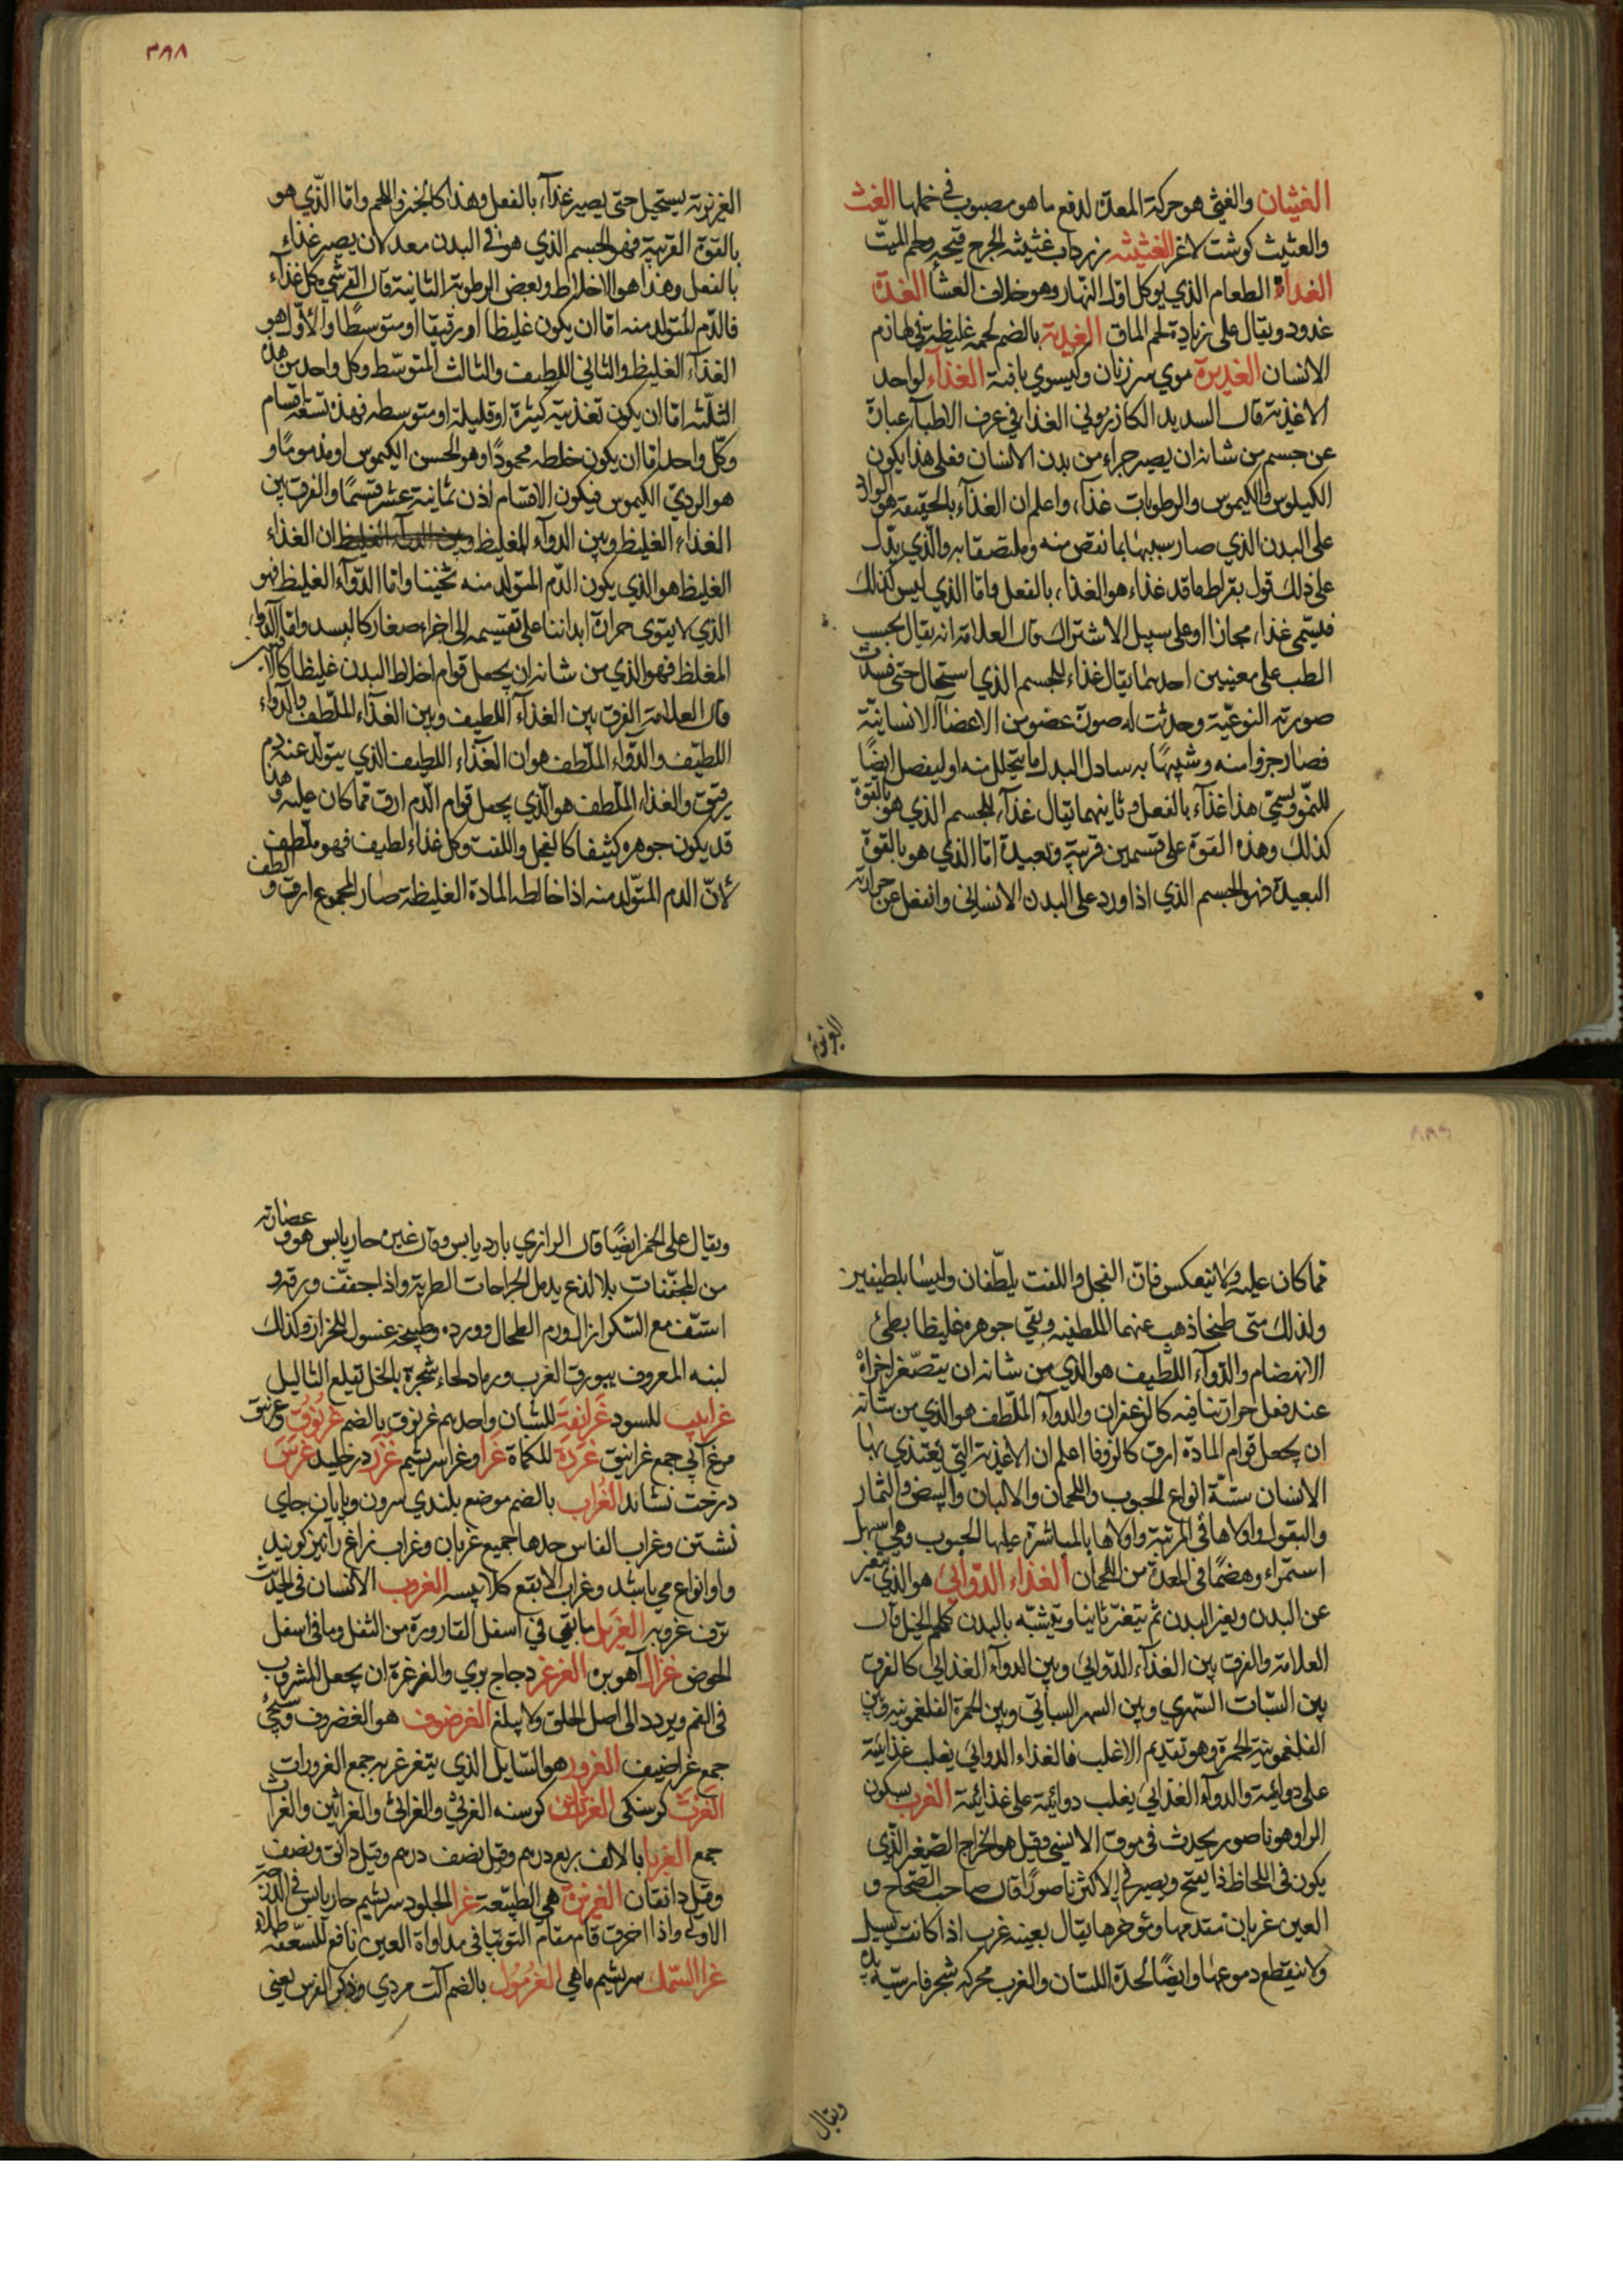 ٣٨٨
الغثيان والغثي هو حركة المعدة لدفع ما هو مصبوب في خملها الغث
والغثيث كوشت لاغر الغثيثه زرداب غثيثه الجرح قيحه ولحم الميت
الغداء الطعام الذي يوكل اول النهار وهو خلاف العشا الغدة
غدود ويقال على زيادة لحم الماق الغدبة بالضم لحمة غليظة في لهازم
الانسان الغديرة موي سر زنان وكيسوي بافته الغذآء لواحد
الاغذية قال السديد الكازروني الغذا في عرف الاطبآء عبارة
عن جسم من شانه ان يصير جزاء من بدن الانسان فعلى هذا يكون
الكيلوس والكيموس والرطوبات غذاء واعلم ان الغذآء بالحقيقة هو الوارد
على البدن الذي صار سببها بما نقص منه وملتصقا به والذي يدل
على ذلك قول بقراط ما قد غذاء هو الغذاء بالفعل واما الذي ليس كذلك
فيسمى غذاء مجازا او على سبيل الاشتراك قال العلامة انه يقال بحسب
الطب على معنيين احدهما يقال غذاء للجسم الذي استحال حتى فسدت
صورته النوعية وحدثت له صورة عضو من الاعضآ الانسانية
فصار جزوا منه وشبيها به سادل البدل ما يتحلل منه او ليفصل ايضا
للنمو ويسمى هذا غذآء بالفعل وثانيهما يقال غذآء للجسم الذي هو بالقوة
كذلك وهذه القوة على قسمين قريبة وبعيدة اما الذي هو بالقوة
البعيدة فهو الجسم الذي اذا ورد على البدن الانساني وانفعل عن حرارته
الغريزية
الغريزية يستحيل حتى يصير غذآء بالفعل وهذا كالخبز واللحم واما الذي هو
بالقوة القريبة فهو الجسم الذي هو في البدن معد لان يصير غذاء
بالفعل وهذا هو الاخلاط وبعض الرطوبة الثانية قال القرشي كل غذآء
فالدم المتولد منه اما ان يكون غليظا او رقيقا او متوسطا والاول هو
الغذآء الغليظ والثاني اللطيف والثالث المتوسط وكل واحد من هذه
الثلثة اما ان يكون تغذيته كثيرة او قليلة او متوسطه فهذه تسعة اقسام
وكل واحد اما ان يكون خلطه محمودا وهو الحسن الكيموس او مذموما و
هو الردي الكيموس فيكون الاقسام اذن ثمانية عشر قسما والفرق بين
الغذاء الغليظ وبين الدوآء المغليظ ان الغذاء
الغليظ هو الذي يكون الدم المتولد منه ثخينا واما الدوآء الغليظ فهو
الذي لا يقوى حرارة ابداننا على تقسيمه الى اجزاء صغار كالبسد واما الدوآء
المغلظ فهو الذي من شانه ان يجعل قوام اخلاط البدن غليظا كالا
قال العلامة الفرق بين الغذآء اللطيف وبين الغذآء الملطف والدوآء
اللطيف والدوآء الملطف هو ان الغذآء اللطيف الذي يتولد عنه دم
رقيق والغذاء الملطف هو الذي يجعل قوام الدم ارق مما كان عليه وهذا
قد يكون جوهره كثيفا كالفجل واللفت وكل غذاء لطيف فهو ملطف
لان الدم المتولد منه اذا خالطه المادة الغليظة صار المجموع ارق و الطف
مما كان عليه ولا ينعكس فان الفجل واللفت يلطفان وليسا بلطيفين
ولذلك متى طبخا ذهب عنهما الملطفيه وبقي جوهره غليظا بطئ
الانهضام والدوآء اللطيف هو الذي من شانه ان يتصغر اجزاؤه
عند فعل حرارتنا فيه كالزعفران والدوآء الملطف هو الذي من شانه
ان يجعل قوام المادة ارق كالزوفا اعلم ان الاغذية التي يغتذي بها
الانسان ستة انواع الحبوب واللحمان والالبان والبيض والثمار
والبقول واولاها في المرتبة واولاها بالمباشرة عليها الحبوب وهي اسهل
استمراء وهضما في المعدة من اللحمان الغذاء الدوائي هو الذي يتغير
عن البدن ويغير البدن ثم يتغير ثانيا ويتشبه بالبدن كلحم الخيل قال
العلامة والفرق بين الغذآء الدوائي وبين الدوآء الغذائي كالفرق
بين السبات السهري وبين السهر السباتي وبين الحمرة الفلغمونيه وبين
الفلغمونية الحمرة وهو تقديم الاغلب فالغذاء الدوائي يغلب غذائية
على دوائية والدوآء الغذائي يغلب دوائية على غذائية الغرب بسكون
الرا وهو ناصور يحدث في موق الانسي وقيل هو الخراج الصغير الذي
يكون في اللحاظ ذا يفتح ويصير في الاكثر ناصورا قال صاحب الصحاح و
العين غربان مقدمها ومؤخرها يقال بعينه غرب اذا كانت تسيل
ولا ينقطع دموعها وايضا لحدة اللسان والغرب محركه شجر فارسيه
ويقال
ويقال على الخمر ايضا قال الرازي بارد يابس وقال غيره حار يابس هو و عصارته
من المجففات بلا لذع يدمل الجراحات الطرية واذا جففت ورقه و
استف مع السكر ازال ورم الطحال وورده وطبيخه غسول للحزاز وكذلك
لبنه المعروف ببورق الغرب ورماد لحاء شجره بالخل تقلع الثاليل
غرابيب للسود غرانقة للشبان واحدهم غرنوق بالضم غرنوق وغرنيق
مرغ آبي جمع غرانيق غردة للكماة غرا وغراء سريشم غرز درخليدن غرس
درخت نشاند الغراب بالضم موضع بلندي سرون وپايان جاي
نشستن وغراب الفاس حدها جميع غربان وغراب زاغ را نيز كويند
واو انواع مي باشد وغراب الابقع كلاپيسه الغروب الانسان في الحديث
ترف غروبه الغريل ما بقي في اسفل القارورة من الثفل وما في اسفل
الحوض غزال آهو بره الغرغر دجاج بري والغرغرة ان يجعل المشروب
في الفم ويردد الى اصل الحلق ولا يبلغ الغرضوف هو الغضروف
جمع غراضيف الغرور هو السايل الذي يتغرغر به جمع الغرورات
الغرث كرسنكى الغرثان كرسنه الغرثي والغراثى والغراثين والغراث
جمع الغربا بالالف ربع درهم وقيل نصف درهم وقيل دانق ونصف
وقيل دانقان الغريزة هي الطبيعة غرا الجلود سريشم حار يابس في الدرجة
الاولى واذا احرق قام مقام التوتيا في مداواة العين نافع للسعفة طلاء
غرا السمك سريشم ماهي الغرمول بالضم آلت مردي وذكر الفرس يعني